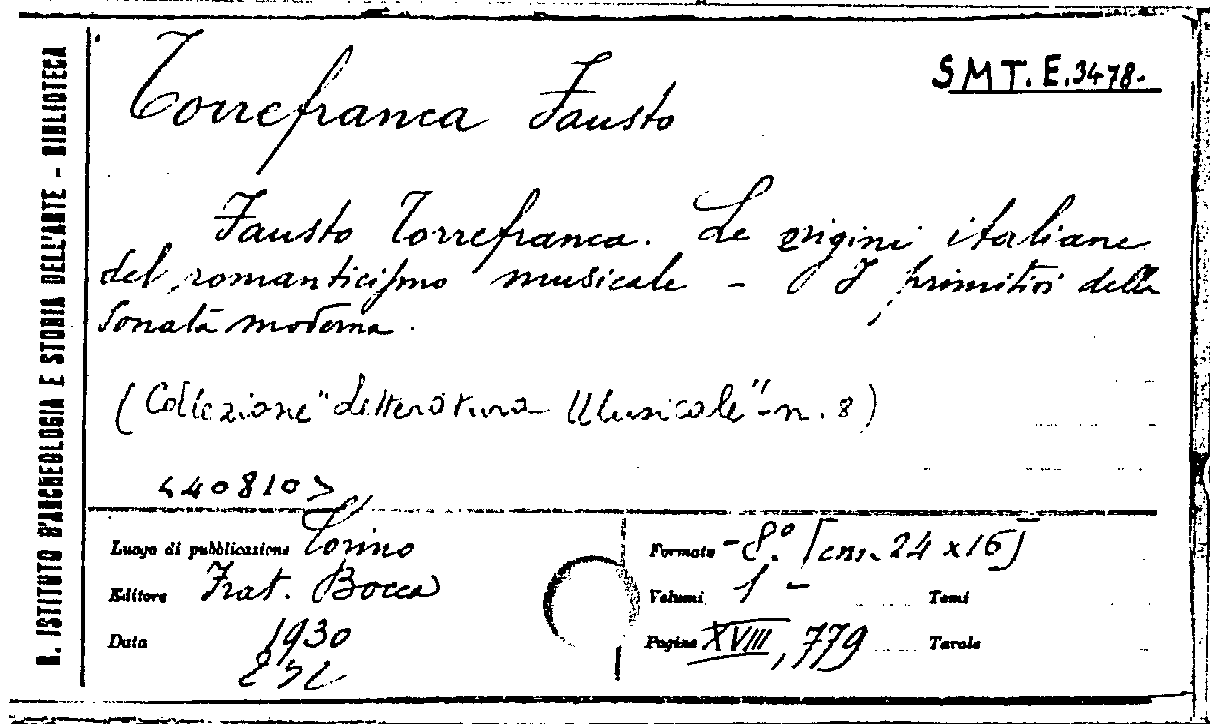 R. ISTITUTO D'ARCHEOLOGIA E STORIA DELL'ARTE - BIBLIOTECA
Torrefranca Fausto
SMT.E.3478.
Fausto Torrefranca. Le origini italiane
del romanticismo musicale - I primitivi della
Sonata moderna.
(Collezione "Letteratura Musicale" - n. 8)
<40810>
Luogo di pubblicazione Torino
Editore Frat. Bocca
Data 1930
Formato - 8.° [cm. 24 x 16]
Volumi 1 - Tomi
Pagine XVIII, 779 Tavole